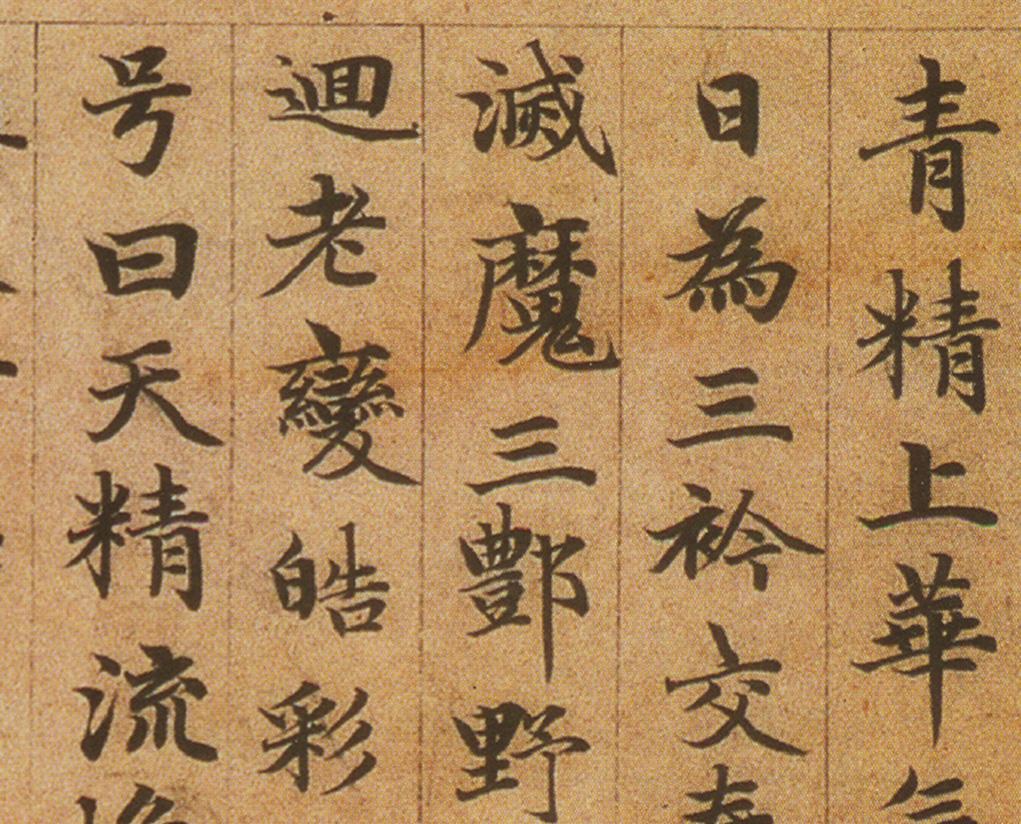 青精上華
日為三衿交
滅魔三酆野
迴老變皓彩
号曰天精流